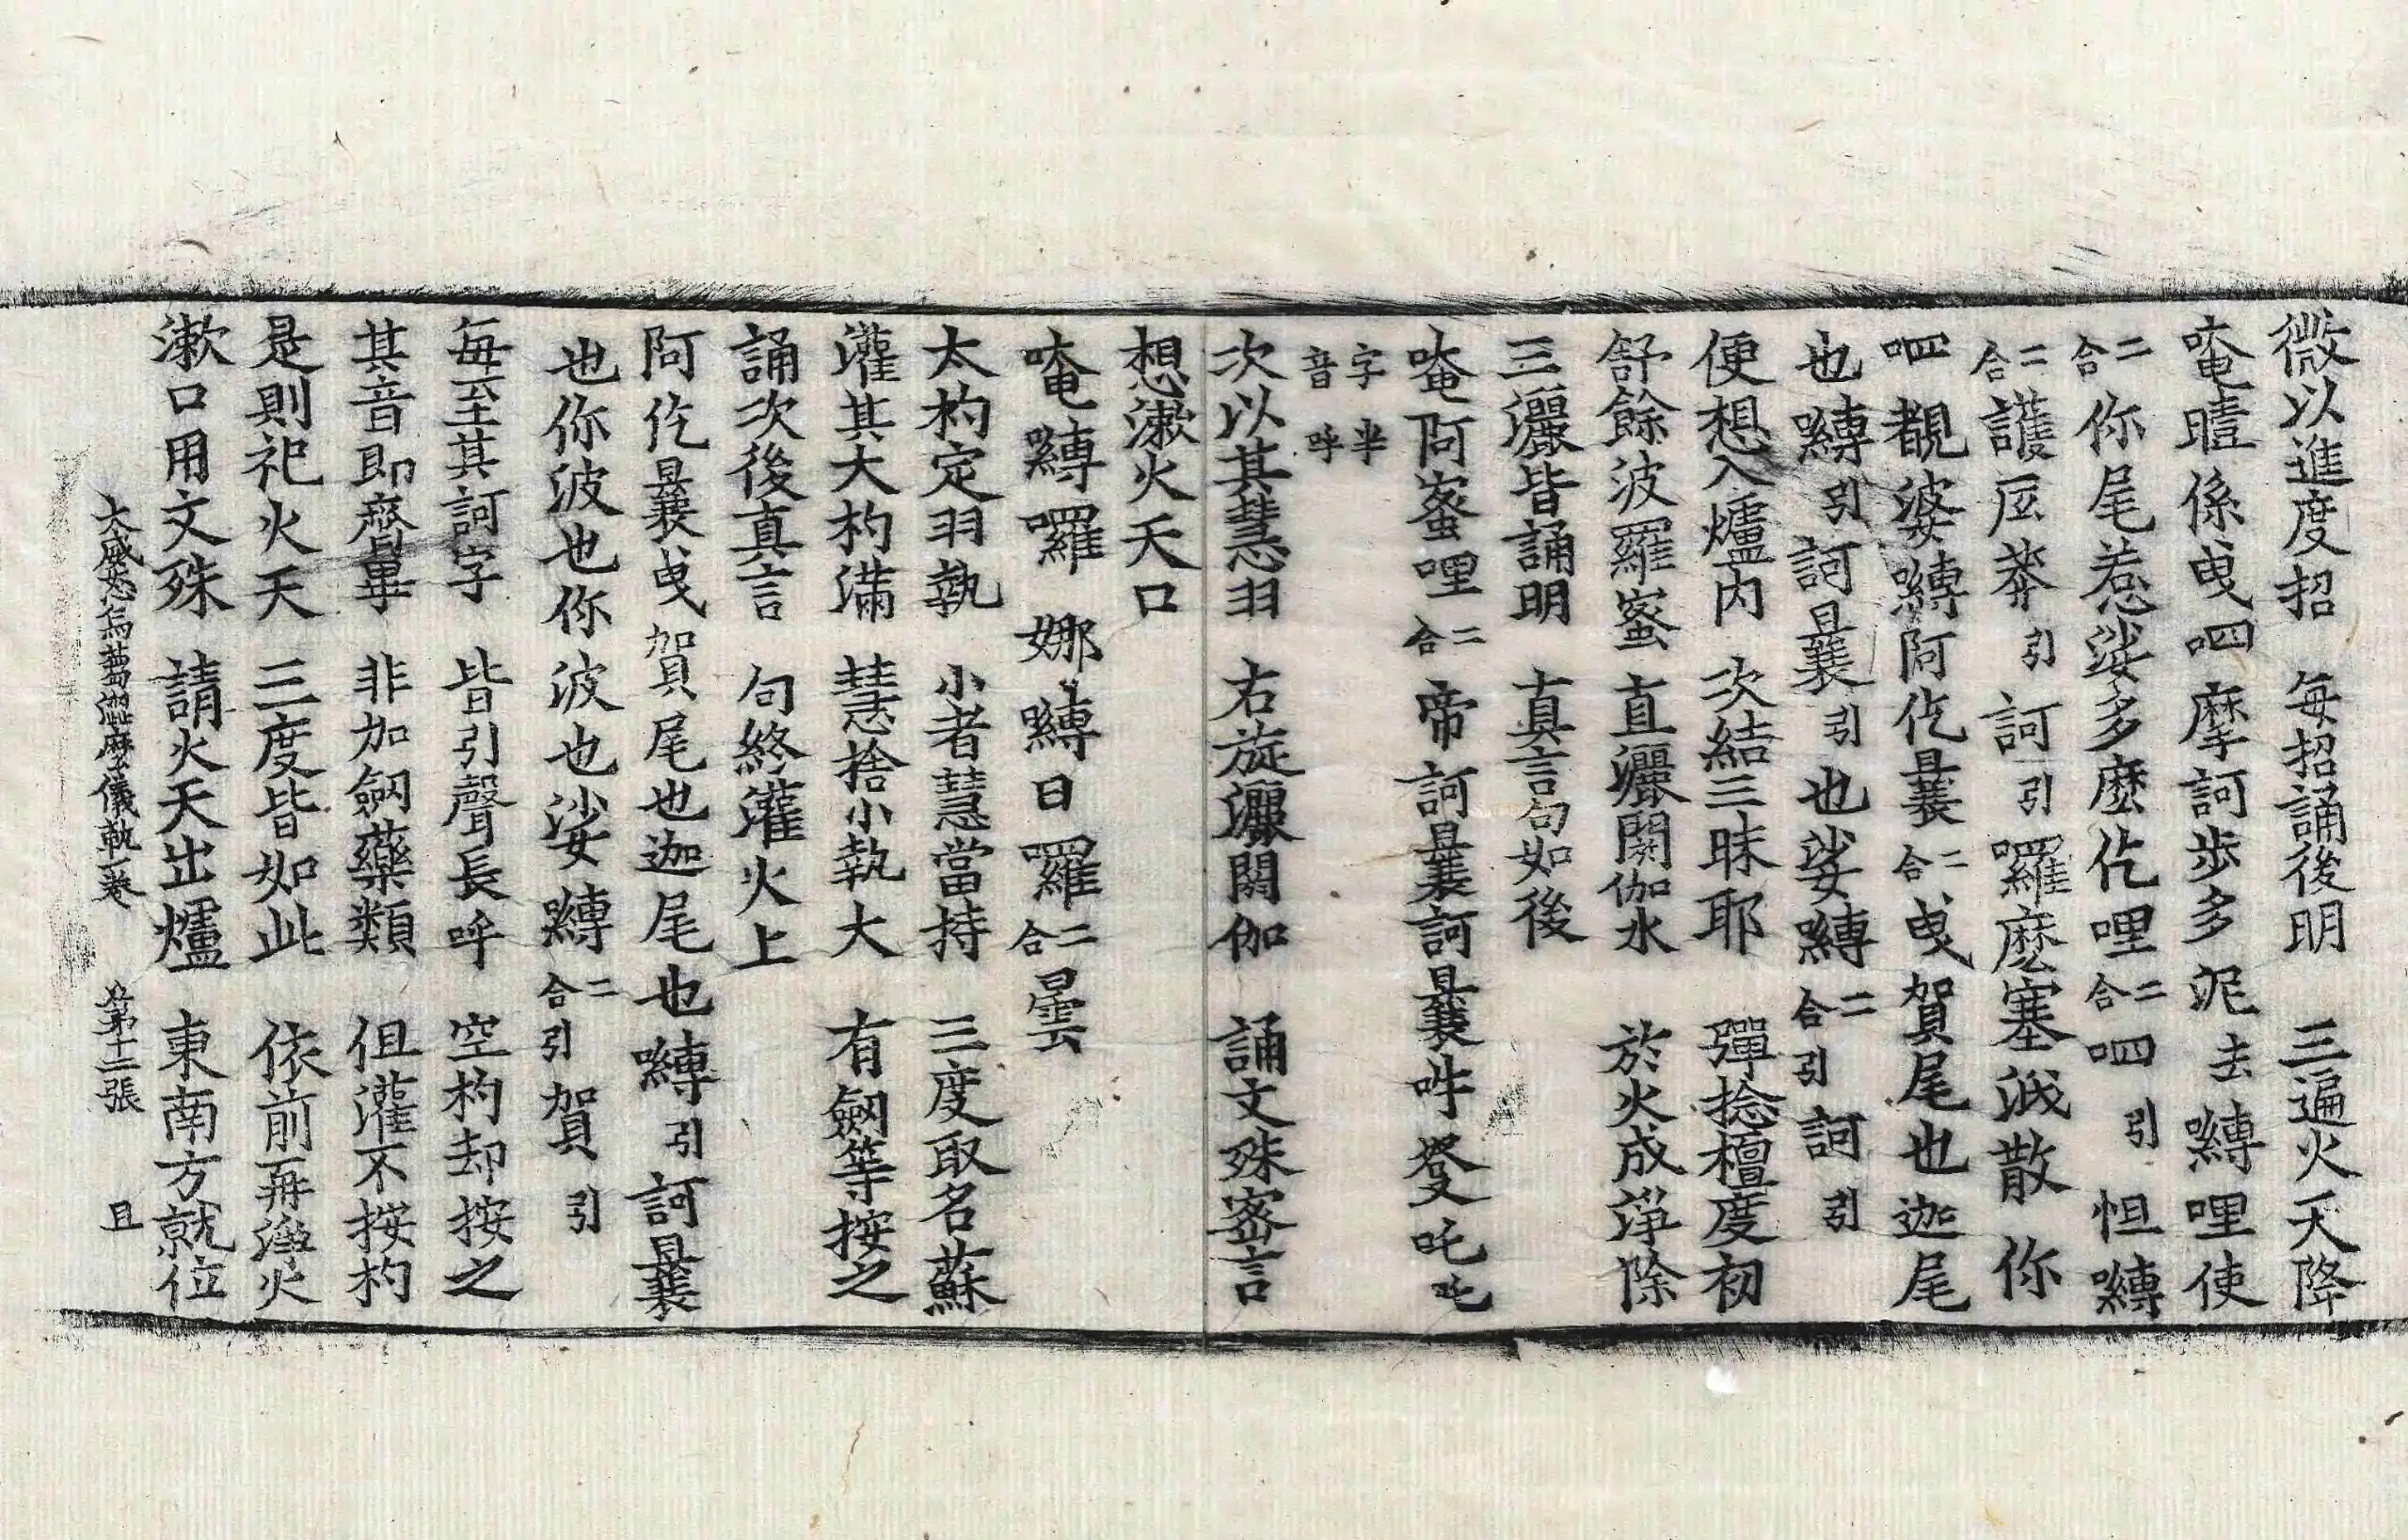 微以進度招 每招誦後明 三遍火天降
唵曀係曳呬摩訶步多泥去嚩哩使
二合你尾惹娑多麽仡哩二合呬引怛嚩
二合護㕓莽引訶引囉麽塞泧散你
呬覩婆嚩阿仡曩二合曳賀尾也迦尾
也嚩引訶曩引也娑嚩二合引訶引
便想入爐內 次結三昧耶 彈捻檀度初
舒餘波羅蜜 直灑閼伽水 於火成淨除
三灑皆誦明 真言句如後
唵阿蜜哩二合帝訶曩訶曩吽發吒吒
字半音呼
次以其慧羽 右旋灑閼伽 誦文殊密言
想漱火天口
唵嚩囉娜嚩日囉二合曇
太杓定羽執 小者慧當持 三度取名蘇
灌其大杓滿 慧捨小執大 有劒等按之
誦次後真言 句終灌火上
阿仡曩曳賀尾也迦尾也嚩引訶曩
也你波也你波也娑嚩二合引賀引
每至其訶字 皆引聲長呼 空杓却按之
其音即齊畢 非加劒藥類 但灌不按杓
是則祀火天 三度皆如此 依前再淨火
漱口用文殊 請火天出爐 東南方就位
大威怒烏蒭澀麽儀軌一卷 第十二張 且